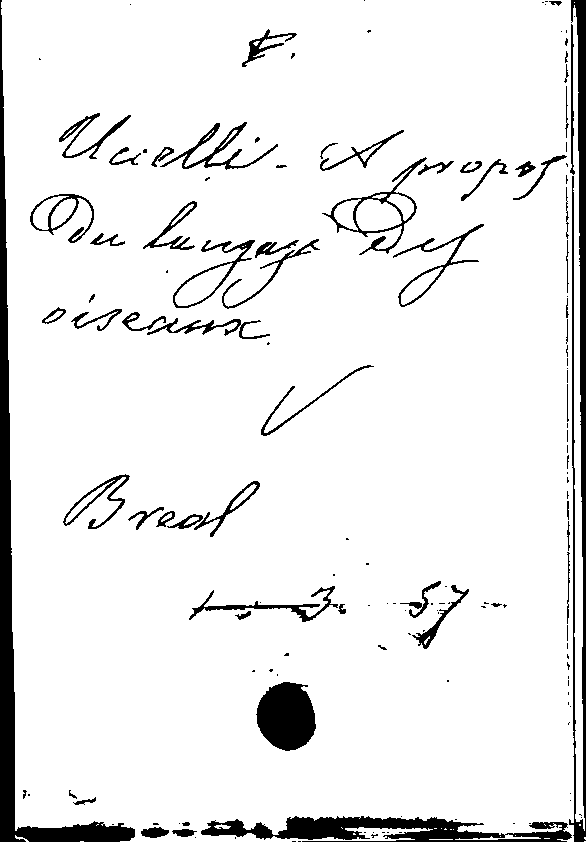 Ucelli - A propos
Du langage Des
oiseaux
Breal
3. 57